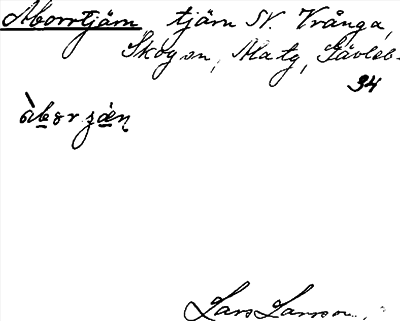 Aborrtjärn tjärn SV. Vrånga,
Skogen, Matg, Gävleb.
34
Lars Larsson